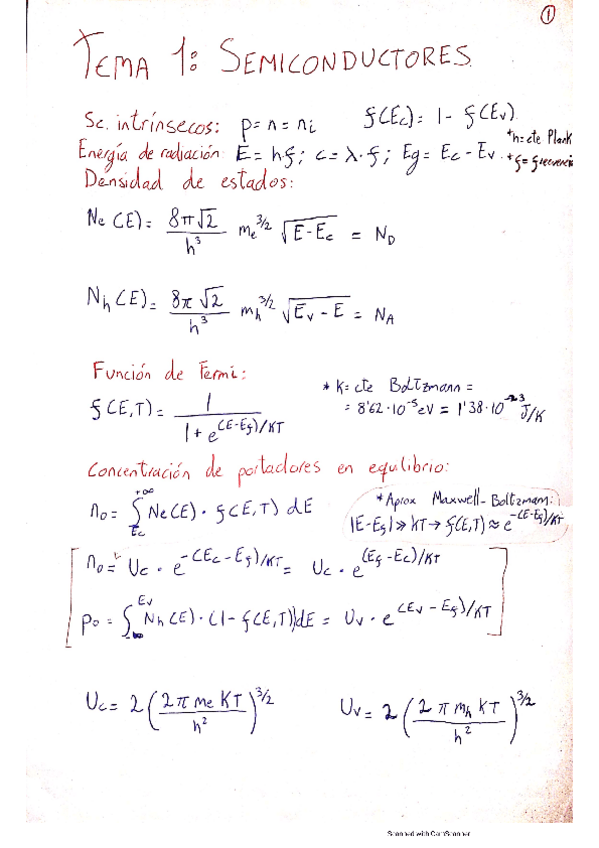 ①
TEMA 1: SEMICONDUCTORES
Sc. intrínsecos: p = n = ni   f(Ec) = 1 - f(Ev)
*h = cte Plank
Energía de radiación E = h·f ; c = λ·f ; Eg = Ec - Ev *f = frecuencia
Densidad de estados:
Ne(E) = 8π√2/h³ me^3/2 √(E-Ec) = ND
Nh(E) = 8π√2/h³ mh^3/2 √(Ev-E) = NA
Función de Fermi:
* K = cte Boltzmann =
= 8'62·10^-5 eV = 1'38·10^-23 J/K
f(E,T) = 1/(1+e^(E-Ef)/KT)
Concentración de portadores en equlibrio:
n₀ = ∫Ec^+∞ Ne(E)·f(E,T) dE
*Aprox Maxwell-Boltzmann:
|E-Ef| >> KT → f(E,T) ≈ e^-(E-Ef)/KT
n₀ = Uc·e^-(Ec-Ef)/KT = Uc·e^(Ef-Ec)/KT
p₀ = ∫-∞^Ev Nh(E)·(1-f(E,T))dE = Uv·e^(Ev-Ef)/KT
Uc = 2(2π me KT/h²)^3/2   Uv = 2(2π mh KT/h²)^3/2
Scanned with CamScanner